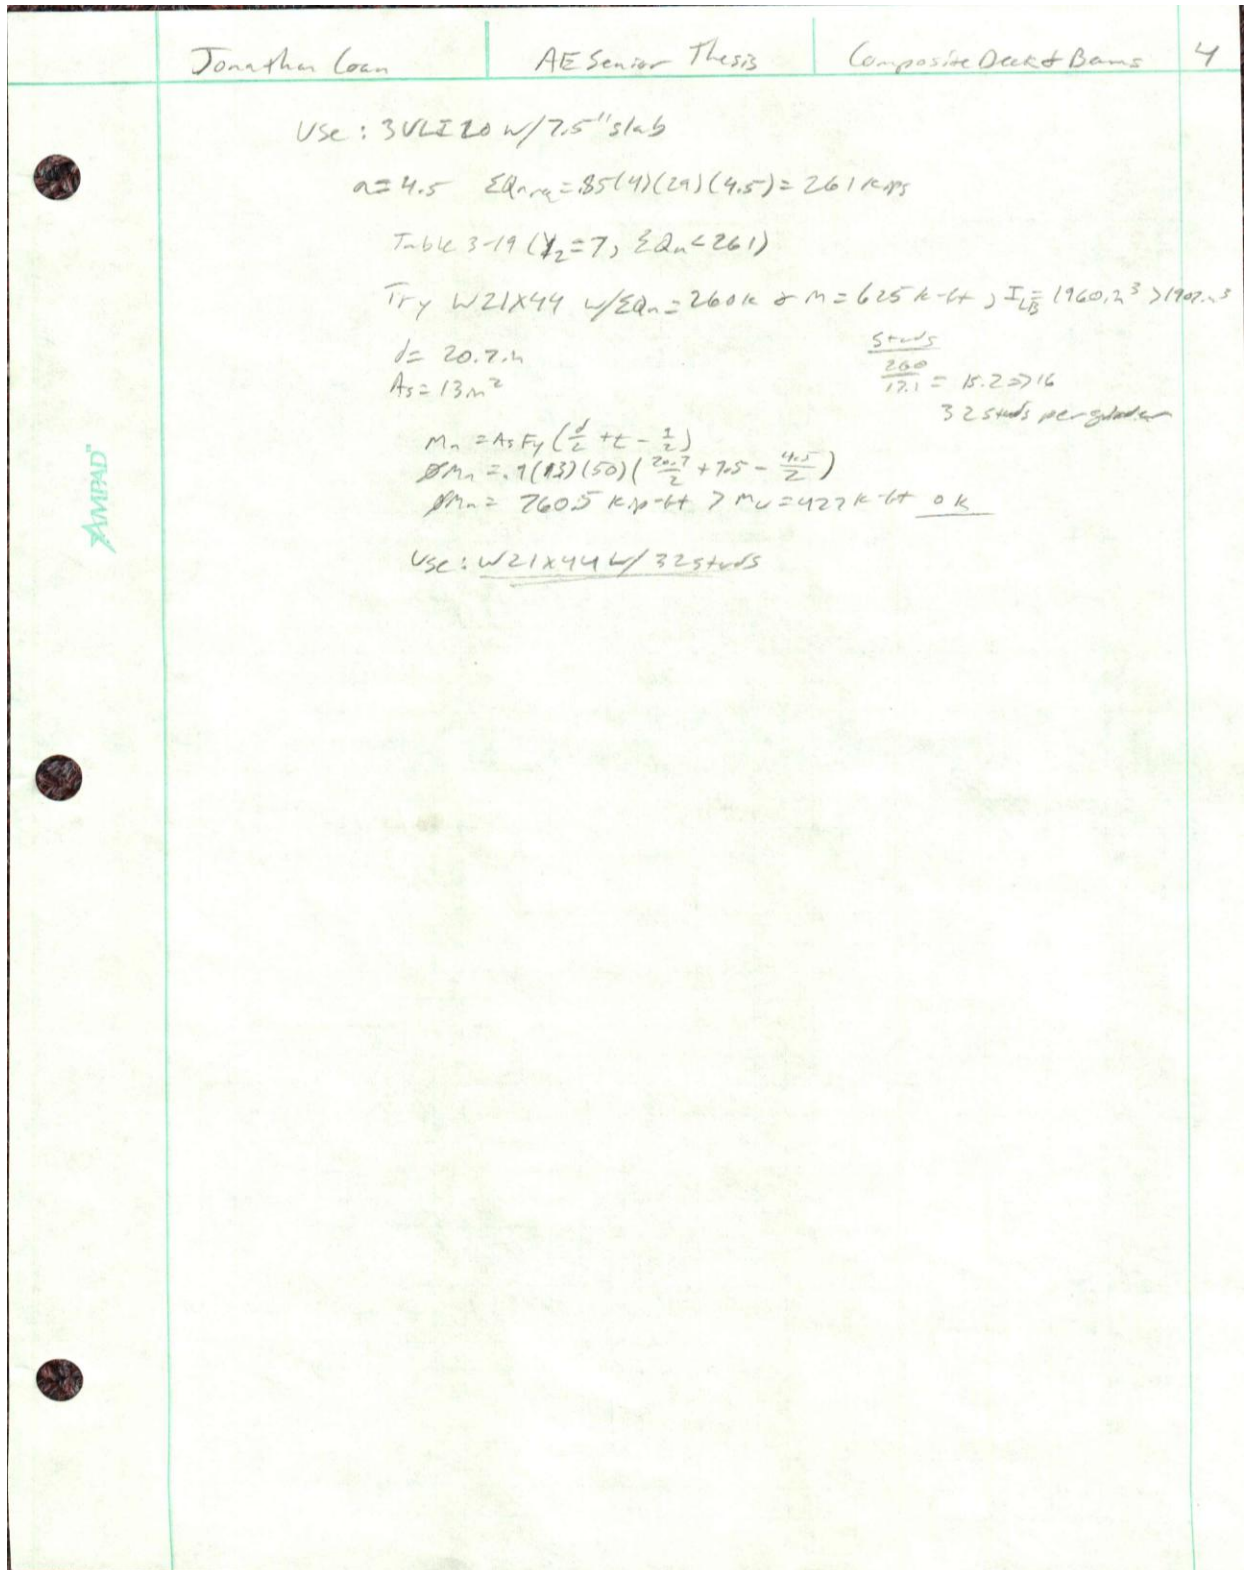 Jonathan Coan
AE Senior Thesis
Composite Deck & Beams
4
Use: 3VLI20 w/7.5" slab
a=4.5 ΣQnrq=.85(4)(29)(4.5)=261 kips
Table 3-19 (Y2=7, ΣQn<261)
Try W21X44 w/ΣQn=260k & M=625 k-ft, ILB=1960in³ >1902in³
d= 20.7in
As=13in²
studs
260/17.1 = 15.2=>16
32 studs per girder
Mn =AsFy(d/2 +t - a/2)
ØMn =.9(13)(50)(20.7/2 +7.5 - 4.5/2)
ØMn = 760.5 kip-ft > Mu=427k-ft ok
Use: W21x44 w/ 32 studs
AMPAD™